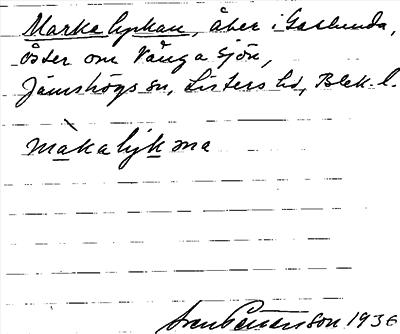 Markalyckan, åker i Gaslunda,
öster om Vånga sjön,
Jämshögs sn, Listers hd, Blek. l.
màkalykma
Sven Benson 1936